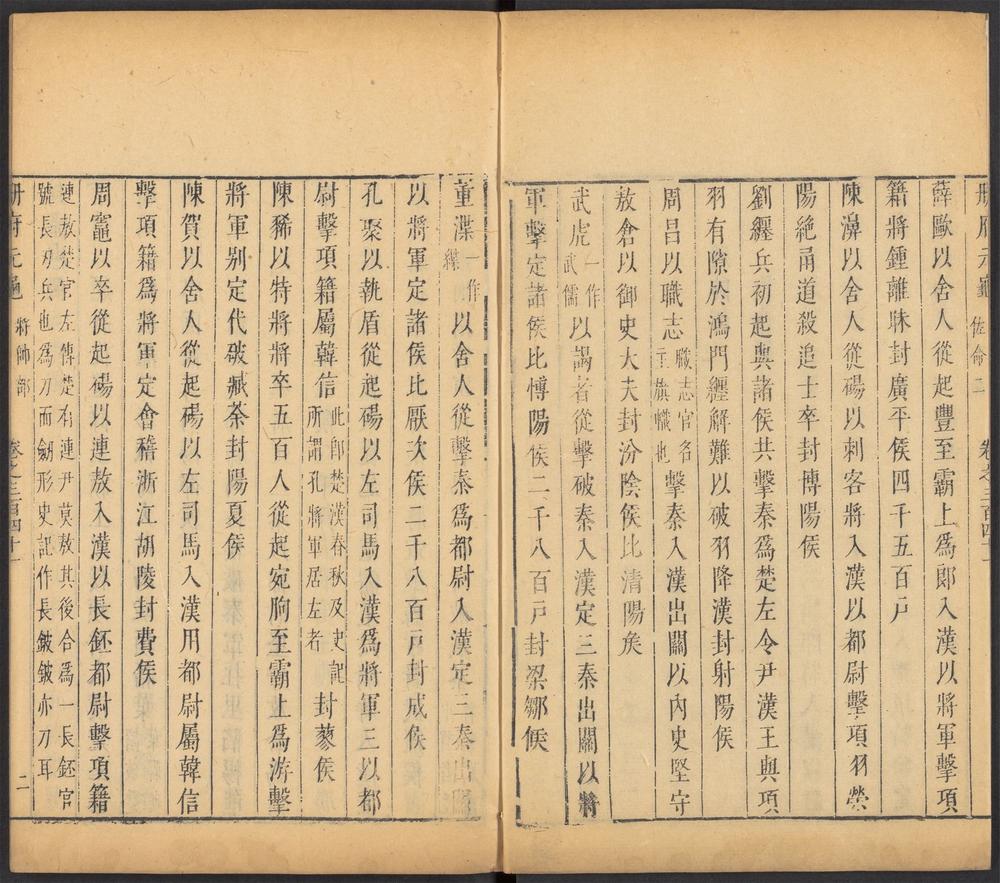 冊府元龜 佐命二 卷之三百四十一
薛歐以舍人從起豐至霸上爲郎入漢以將軍擊項
籍將鍾離眛封廣平侯四千五百戶
陳濞以舍人從碭以刺客將入漢以都尉擊項羽滎
陽絶甬道殺追士卒封博陽侯
劉纏兵初起與諸侯共擊秦爲楚左令尹漢王與項
羽有隙於鴻門纏解難以破羽降漢封射陽侯
周昌以職志職志官名主旗幟也擊秦入漢出關以內史堅守
敖倉以御史大夫封汾陰侯比清陽矦
武虎一作武儒以謁者從擊破秦入漢定三秦出關以將
軍擊定諸侯比博陽侯二千八百戶封梁鄒侯
董渫一作緤以舍人從擊秦爲都尉入漢定三秦出關
以將軍定諸侯比厭次侯二千八百戶封成侯
孔聚以執盾從起碭以左司馬入漢爲將軍三以都
尉擊項籍屬韓信此即楚漢春秋及史記所謂孔將軍居左者封蓼侯
陳豨以特將將卒五百人從起宛朐至霸上爲游擊
將軍别定代破臧荼封陽夏侯
陳賀以舍人從起碭以左司馬入漢用都尉屬韓信
擊項籍爲將軍定會稽浙江胡陵封費侯
周竈以卒從起碭以連敖入漢以長鉟都尉擊項籍
連敖楚官左傳楚有連尹莫敖其後合爲一長鉟官
號長刃兵也爲刀而劒形史記作長鈹鈹亦刀耳
冊府元龜 將帥部 卷之三百四十一 二